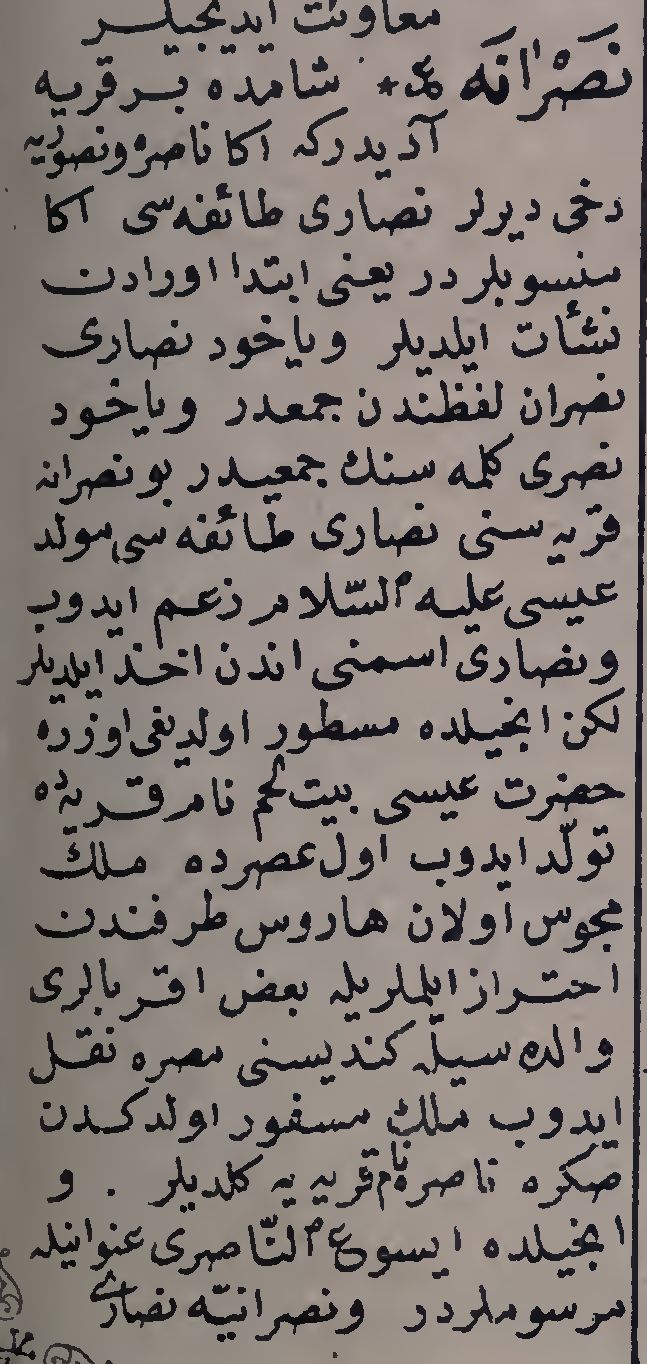 معاونت ایدیجیلر
نَصْرَانَه عم * شامده بر قریه
آدیدرکه اکا ناصره ونصوریه
دخی دیرلر نصاری طائفه‌سی اکا
منسوبلردر یعنی ابتدا اورادن
نشأت ایلدیلر ویاخود نصاری
نصران لفظندن جمعدر ویاخود
نصری کلمه سنك جمعیدر بو نصرانه
قریه سنی نصاری طائفه سی مولد
عیسی علیه السّلام زعم ایدوب
ونصاری اسمنی اندن اخذ ایلدیلر
لکن انجیلده مسطور اولدیغی اوزره
حضرت عیسی بیت لحم نام قریه‌ده
تولّد ایدوب اول عصرده ملك
مجوس اولان هاروس طرفندن
احتراز ایلملریله بعض اقربالری
والده سیله کندیسنی مصره نقل
ایدوب ملك مسفور اولدکدن
صکره ناصره نام قریه یه کلدیلر . و
انجیلده ایسوع النّاصری عنوانیله
مرسوملردر ونصرانیّه نصاری